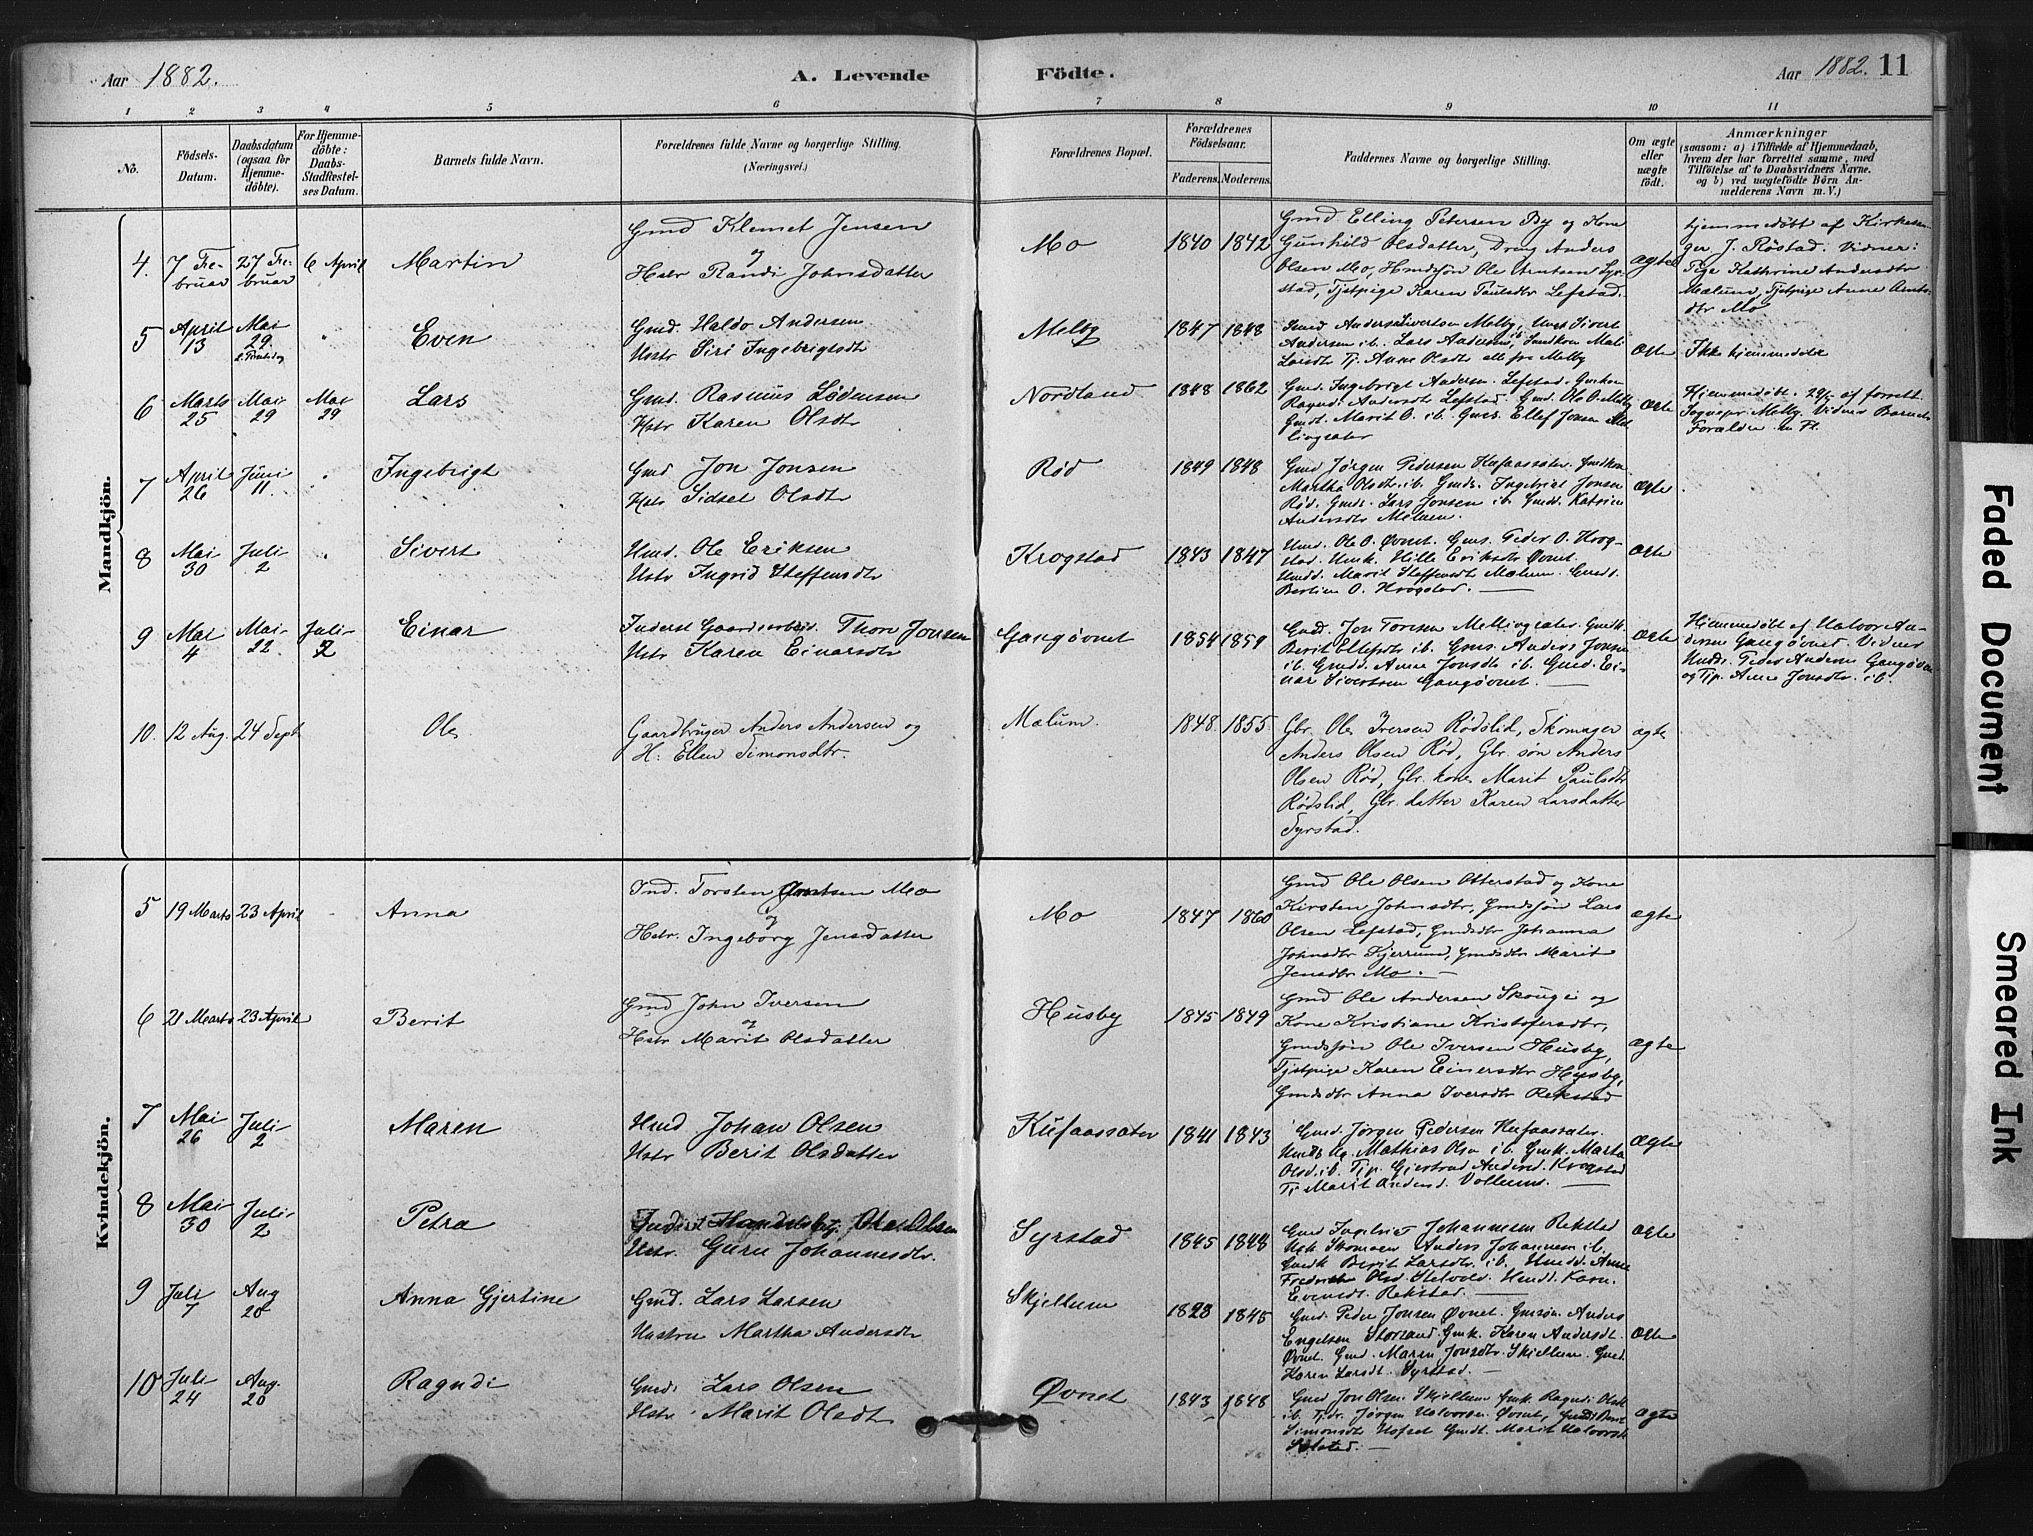 Aar 1882.
A. Levende
Födte.
Aar 1882. 11
1 2 3 4 5 6 7 8 9 10 11
No.
Födsels-Datum.
Daabsdatum (ogsaa for Hjemmedöbte).
For Hjemmedöbte: Daabs-Stadfestelses Datum.
Barnets fulde Navn.
Forældrenes fulde Navne og borgerlige Stilling.
(Næringsvei.)
Forældrenes Bopæl.
Forældrenes Födselsaar.
Faderens. Moderens.
Faddernes Navne og borgerlige Stilling.
Om ægte eller uægte födt.
Anmærkninger
(saasom: a) i Tilfælde af Hjemmedaab,
hvem der har forrettet samme, med
Tilföielse af to Daabsvidners Navne.
og b) ved uægtefödte Börn Anmelderens Navn m. V.)
Mandkjön.
4. 7 Februar 27 Februar 6 April Martin
Gmd Klemet Jensen
og
Hstr Randi Johnsdatter
Mo 1840 1842
Gmd. Elling Petersen By og Kone
Gunhild Olsdatter, Dreng Anders
Olsen Mo, Gmdsjøn Ole Arntsen Syrstad, Tjstpige Karen Paulsdtr Lefstad.
ægte
hjemmedöbt af Kirkesanger J. Røstad. Vidner:
Pige Kathrine Andersdtr
Mælum, Tjstpige Anne Arntsdtr Mo
5 April 13 Mai 29 2. Pintsdag Even
Gmd. Haldo Andersen
Hstr Siri Ingebrigtsdtr
Melby 1847 1848
Gmd Anders Sivertsen Melby, Ungk Sivert
Andersen ib. Lars Andersen, Gmdkon Mali
Larsdtr Tj. Anne Olsdtr alle fra Melby
ægte Ikke hjemmedøbt
6 Marts 25 Mai 29 Mai 29 Lars
Gmd. Rasmus Lødensen
Hstr Karen Olsdtr
Nordland 1848 1862
Gmd. Ingebrigt Andersen Lefstad. Gmkon
Ragnd. Andersdtr Lefstad. Gmd. Ole O. Melby
Gmdt. Marit O. ib. Gms. Ellef Jonsen Mellingsæter
ægte
Hjemmedøbt af
Melby. Vidner Barnets
Forældre
7 April 26 Juni 11 Ingebrigt
Gmd Jon Jonsen
Hstr Sidsel Olsdtr
Rød 1849 1848
Gmd Jørgen Pedersen Kufaassæter. Gmdkon
Martha Olsdtr ib. Gmds. Ingebrigt Jonsen
Rød. Gmds. Lars Jonsen ib. Gmdd. Katrine
Andersdtr Melum.
ægte
8 Mai 30 Juli 2 Sivert
Hmd. Ole Eriksen
Hstr Ingrid Steffensdtr
Krogstad 1843 1847
Hmd. Ole O. Øvnet. Gms. Peder O. Krogstad. Hmk. Hille Eriksdtr Øvnet.
Hmdd. Marit Steffensdtr Mælum. Gmdd.
Bertine O. Krogstad.
ægte
9 Mai 4 Mai 22 Juli 2 Einar
Inderst Gaardsarbeid. Thore Jonsen
Hstr Karen Einarsdtr
Gangøvnet 1854 1859
Gmd. Jon Toresen Mellingsæter. Gmdk.
Berit Ellefsdtr ib. Gms. Anders Jonsen
ib. Gmdd. Anne Jonsdtr ib. Gmd. Einar Sivertsen Gangøvnet.
ægte
Hjemmedøbt af Halvor Andersen Gangøvnet. Vidner
Hmds. Peder Andersen Gangøvn
og Tjp. Anne Jonsdtr. ib.
10. 12 Aug. 24 Sept Ole
Gaardbruger Anders Andersen og
H: Ellen Simonsdtr.
Mælum. 1848. 1855
Gbr. Ole Iversen Rødslid, Skomager
Anders Olsen Rød, Gbr. søn Anders
Olsen Rød, Gbr. kone Marit Paulsdtr
Rødslid, Gbr. datter Karen Larsdatter
Syrstad.
ægte
Kvindekjön.
5 19 Marts 23 April Anna
Ind. Torsten Mo
og
Hstr. Ingeborg Jensdatter
Mo 1847 1860
Gmd Ole Olsen Otterstad og Kone
Kirsten Johnsdtr, Gmdsjøn Lars
Olsen Lefstad, Gmdsdtr Johanna
Johnsdtr Kjerrum, Gmdsdtr Marit
Jensdtr Mo.
ægte
6 21 Marts 23 April Berit
Gmd John Iversen
og
Hstr Marit Olsdatter
Husby 1845 1849
Gmd Ole Andersen Skougi og
Kone Kristiane Kristofersdtr,
Gmdsjøn Ole Iversen Husby,
Tjstpige Karen Einersdtr Husby,
Gmdsdtr Anna Iversdtr Rekstad
ægte
7 Mai 26 Juli 2 Maren
Hmd Johan Olsen
Hstr Berit Olsdatter
Kufaassæter 1841 1843
Gmd. Jørgen Pedersen Kufaassæter.
Mathias Olsen ib. Gmk. Marta
Olsd. ib. Tjp. Gjertrud Andersd. Krogstad
Tj Marit Andersd. Vollum.
ægte
8 Mai 30 Juli 2 Petra
Inderst Ole Olsen
Hstr. Guru Johannesdtr.
Syrstad 1845 1848
Gmd Ingebrigt Johannesen Rekstad
Ugk Skomager Anders Johannesen ib.
Gmdk Berit Larsdtr. ib. Hmdd. Anne
Olsd. Hmdd. Karn.
Evensdt. Rekstad.
ægte
9 Juli 7 Aug 20 Anna Gjertine
Gmd. Lars Larsen
Hustru Martha Andersdtr
Skjellum 1828 1845
Gmd. Peder Jonsen Øvnet. Gmsøn Anders
Engelsen Storland. Gmk. Karen Andersdt.
Øvnet. Gmd. Maren Jonsdtr. Skjellum. Gmd.
Karen Larsdt. Syrstad.
ægte
10 Juli 24 Aug. 20 Ragndi
Gmd. Lars Olsen
Hstr. Marit Olsdt
Øvnet 1843 1848
Gmd Jon Olsen Skjellum Gmk. Ragndi Olsdt
ib. Tjdr. Jørgen Halvorsen Øvnet,
Simonsdtr Hofset Gmdt. Marit Halvorsdt
ægte
Faded Document
Smeared Ink